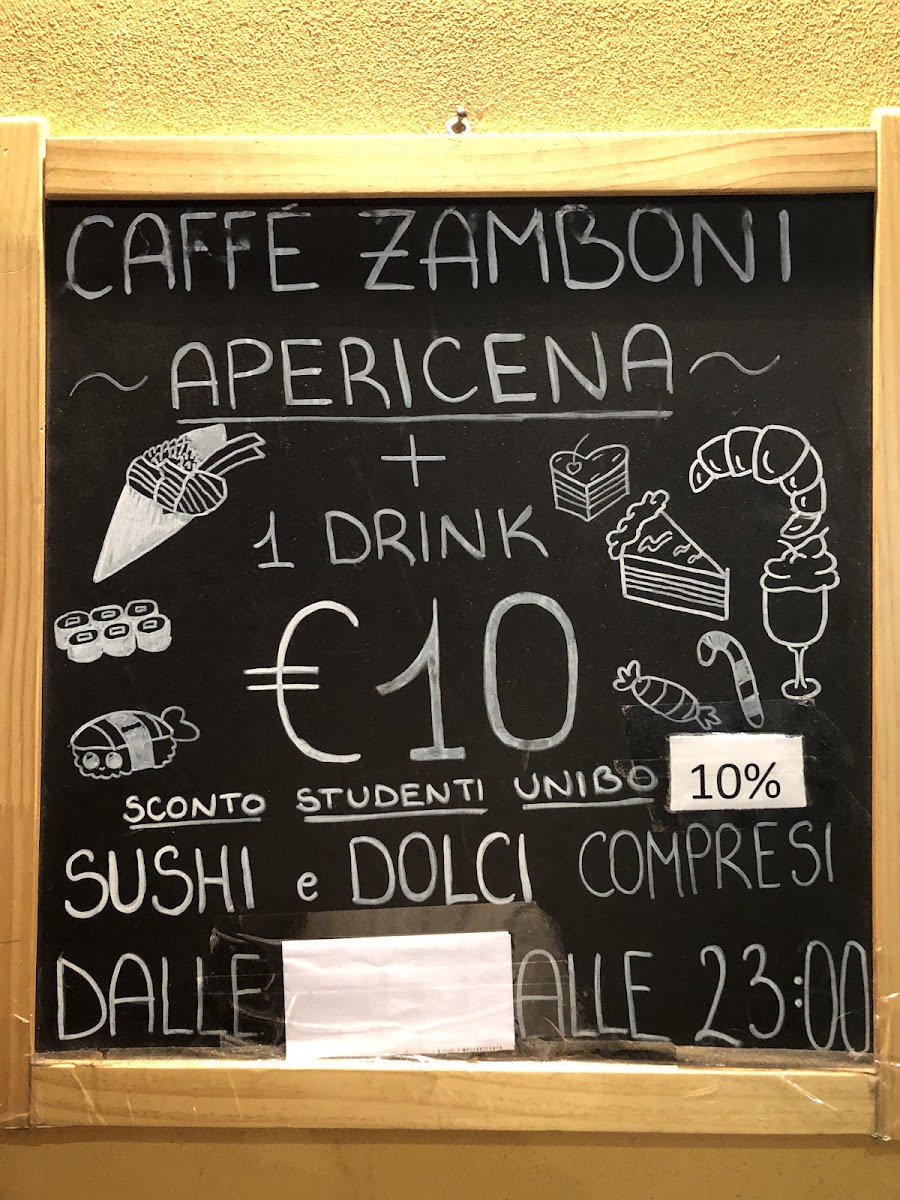 CAFFÉ ZAMBONI
~ APERICENA ~
+
1 DRINK
€10
SCONTO STUDENTI UNIBO 10%
SUSHI e DOLCI COMPRESI
DALLE ALLE 23:00